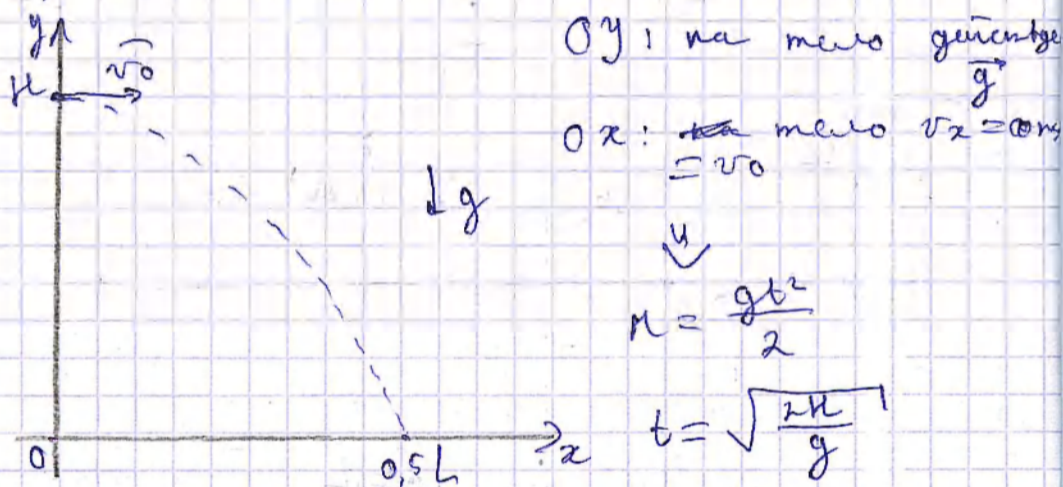 y
H
v0
0
0,5 L
x
↓ g
OY: на тело действуе
g
OX: тело vx = con
= v0
H = gt²/2
t = √(2H/g)